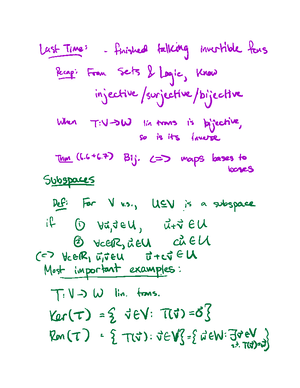 Last Time: - finished talking invertible fxns
Recap: From Sets & Logic, know
injective/surjective/bijective
When T: V → W lin trans is bijective,
so is its inverse
Thm (6.6+6.7) Bij. <=> maps bases to
bases
Subspaces
Def: For V v.s., U⊆V is a subspace
if ① ∀u⃗,v⃗∈U, u⃗+v⃗∈U
② ∀c∈ℝ, u⃗∈U cu⃗∈U
(<=> ∀c∈ℝ, u⃗,v⃗∈U u⃗+cv⃗∈U
Most important examples:
T: V → W lin. trans.
Ker(T) = { v⃗∈V: T(v⃗)=0⃗}
Ran(T) = { T(v⃗): v⃗∈V}={w⃗∈W: ∃v⃗∈V
s.t. T(v⃗)=w⃗}